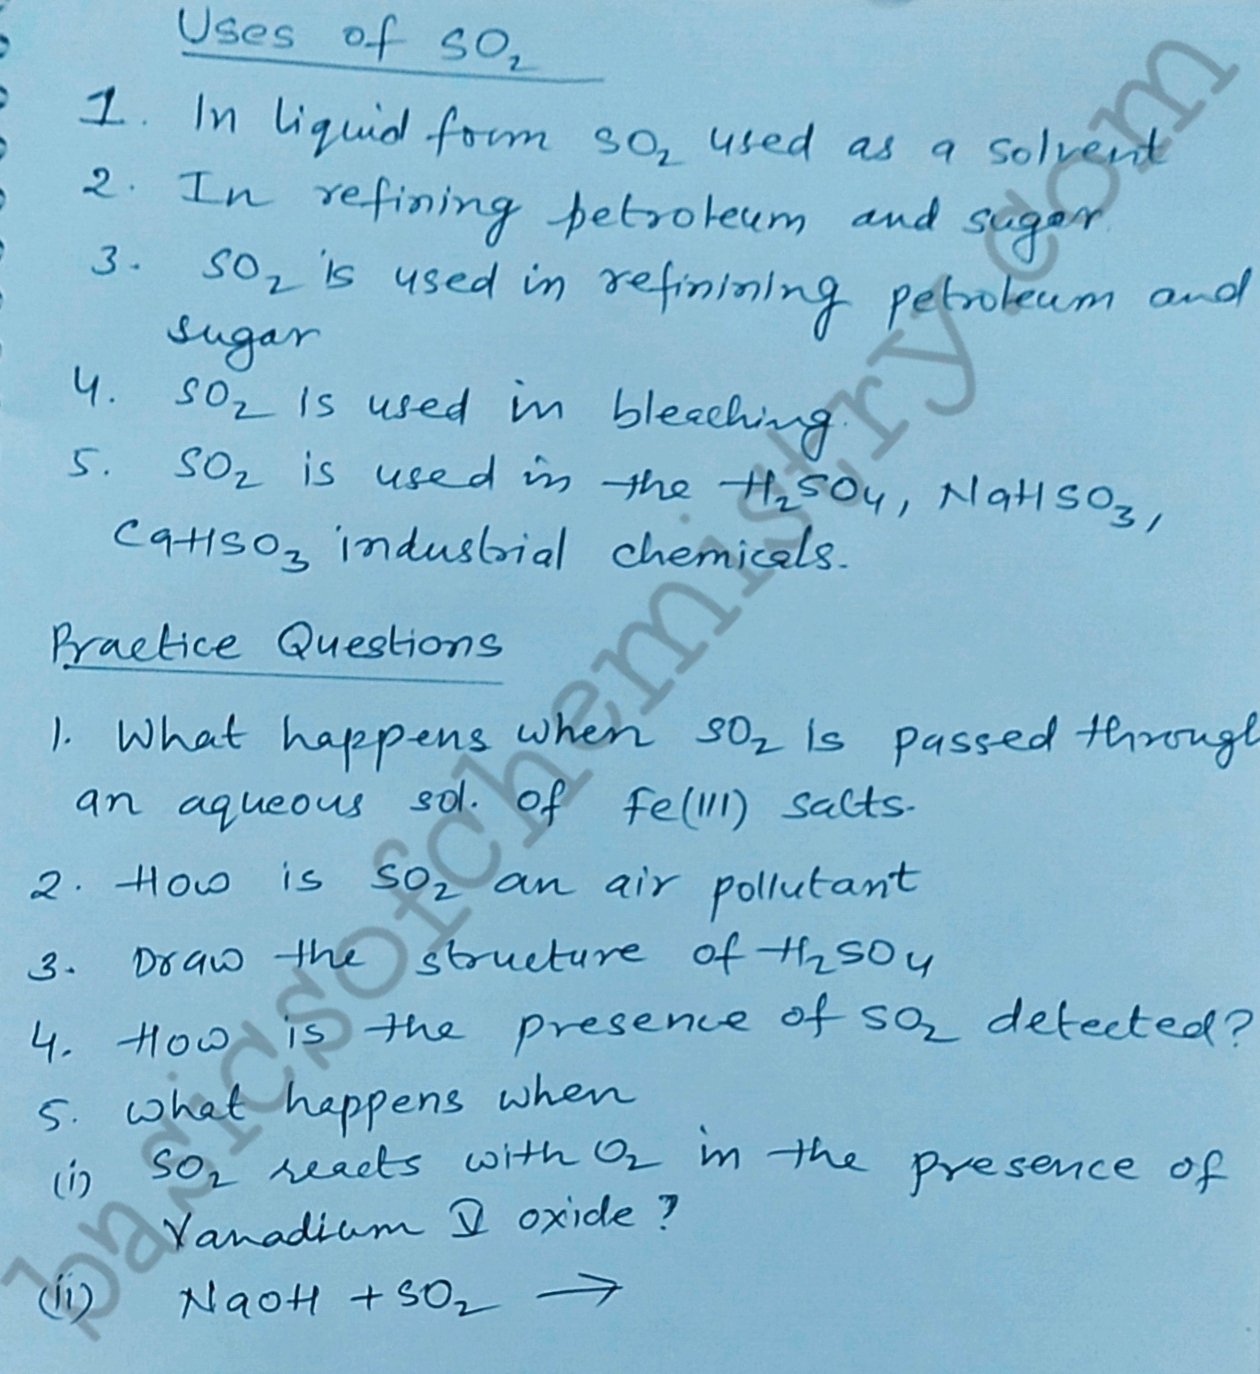 Uses of SO₂
1. In liquid form SO₂ used as a solvent
2. In refining petroleum and sugar.
3. SO₂ is used in refinining petroleum and
sugar
4. SO₂ is used in bleaching.
5. SO₂ is used in the H₂SO₄, NaHSO₃,
CaHSO₃ industrial chemicals.
Practice Questions
1. What happens when SO₂ is passed through
an aqueous sol. of Fe(III) salts.
2. How is SO₂ an air pollutant
3. Draw the structure of H₂SO₄
4. How is the presence of SO₂ detected?
5. What happens when
(i) SO₂ reacts with O₂ in the presence of
Vanadium V oxide?
(ii) NaOH + SO₂ →
basicsofchemistry.com